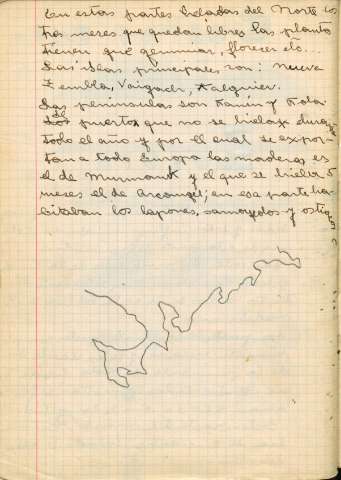 En estas partes heladas del Norte los
tres meses que quedan libres las plantas
tienen que germinar, florecer etc...
Las islas principales son: Nueva
Zembla, Vaigach, Kalguier.
Las peninsulas son Kanin y Kola.
El puerto que no se hiela durante
todo el año y por el cual se expor-
tan a toda Europa las maderas es
el de Murmansk y el que se hiela 5
meses el de Arcangel; en esa parte ha-
bitaban los lapones, samoyedos y ostigos